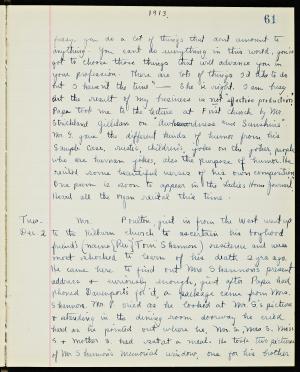 1913
61
busy, you do a lot of things that dont amount to
anything. You cant do everything in this world, you've
got to choose those things that will advance you in
your profession. There are lots of things I'd like to do
but I haven't the time" — She is right. I am busy
but the result of my business is not effective production
Papa took me to the lecture at First church by Mr.
Strickland Gillilan on "Sunshine
Mr. G. gave the different kinds of humor from his
Sample Case, rustic, children's, jokes on the joker, people
who are human jokes, also the purpose of humor. He
recited some beautiful verses of his own composition
One poem is soon to appear in the Ladies Home Journal
Heard all the organ recital this time.
Tues.
Dec. 2
Mr. Poulton just in from the west went up
to the church to ascertain his boyhood
friend's name (Rev. Tom Shannon) residence and was
most shocked to learn of his death 2 yrs ago.
He came here to find out Mrs Shannon's present
address & curiously enough, just after Papa had
phoned Davenports for it a package came from Mrs
Shannon. Mr P cried as he looked at Mr. S's picture
& standing in the dining room doorway he cried
hard as he pointed out where he, Mr. S, Mrs. S, Miss
S & Mother S. had sat at a meal. He took two pictures
of Mr Shannon's Memorial window, one for his brother